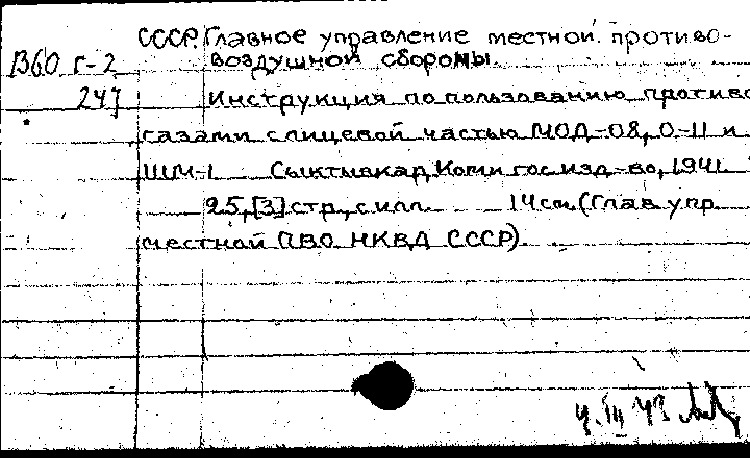 СССР. Главное управление местной противо-
В60 г-2 воздушной обороны.
247 Инструкция по пользованию противо
газами с лицевой частью МОД-08, О-11 и
ШМ-1 Сыктывкар, Коми гос. изд-во, 1941
25, [3] стр., с илл. 14 см. (Глав. упр.
местной ПВО НКВД СССР).
4.III 43